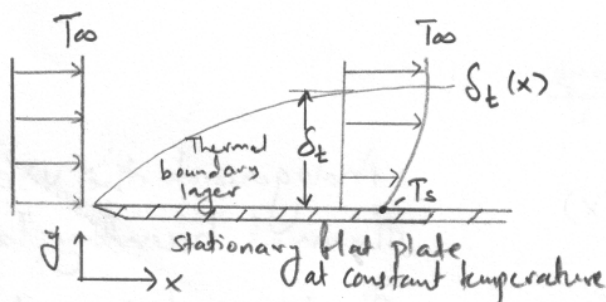 T∞
T∞
δt(x)
δt
Thermal
boundary
layer
Ts
y
x
stationary flat plate
at constant temperature